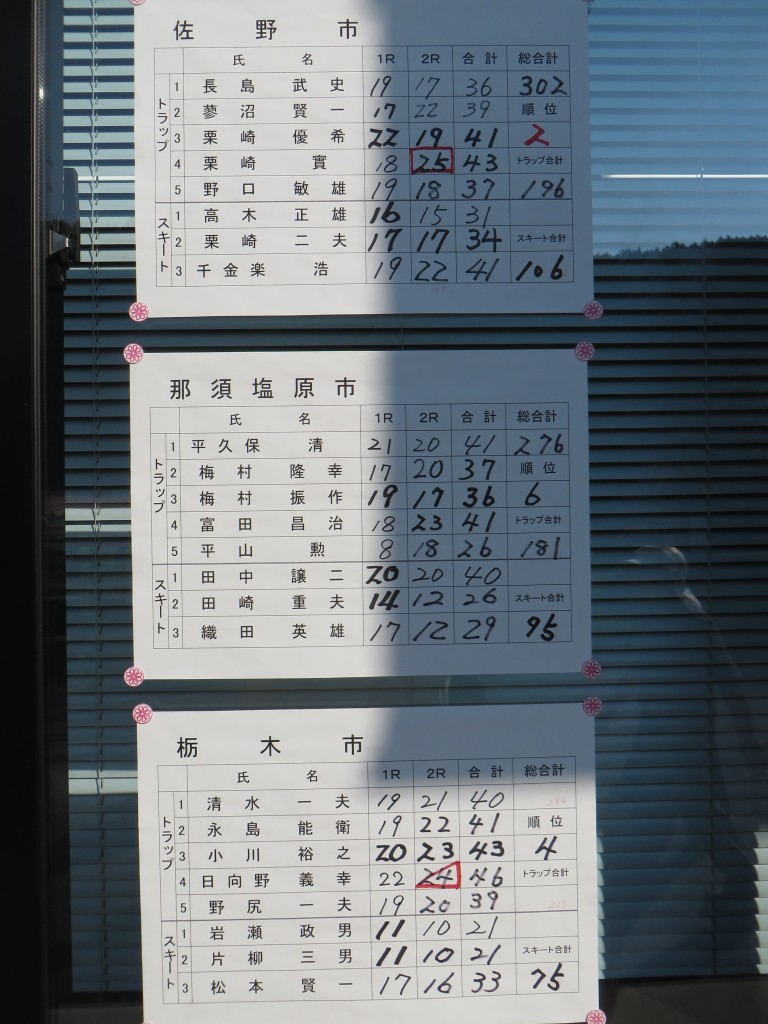 佐野市
氏名 1R 2R 合計 総合計
トラップ
1 長島武史 19 17 36 302
2 蓼沼賢一 17 22 39 順位
3 栗崎優希 22 19 41 2
4 栗崎實 18 25 43 トラップ合計
5 野口敏雄 19 18 37 196
スキート
1 高木正雄 16 15 31
2 栗崎二夫 17 17 34 スキート合計
3 千金楽浩 19 22 41 106
那須塩原市
氏名 1R 2R 合計 総合計
トラップ
1 平久保清 21 20 41 276
2 梅村隆幸 17 20 37 順位
3 梅村振作 19 17 36 6
4 富田昌治 18 23 41 トラップ合計
5 平山勲 8 18 26 181
スキート
1 田中譲二 20 20 40
2 田崎重夫 14 12 26 スキート合計
3 織田英雄 17 12 29 95
栃木市
氏名 1R 2R 合計 総合計
トラップ
1 清水一夫 19 21 40
2 永島能衛 19 22 41 順位
3 小川裕之 20 23 43 4
4 日向野義幸 22 24 46 トラップ合計
5 野尻一夫 19 20 39
スキート
1 岩瀬政男 11 10 21
2 片柳三男 11 10 21 スキート合計
3 松本賢一 17 16 33 75